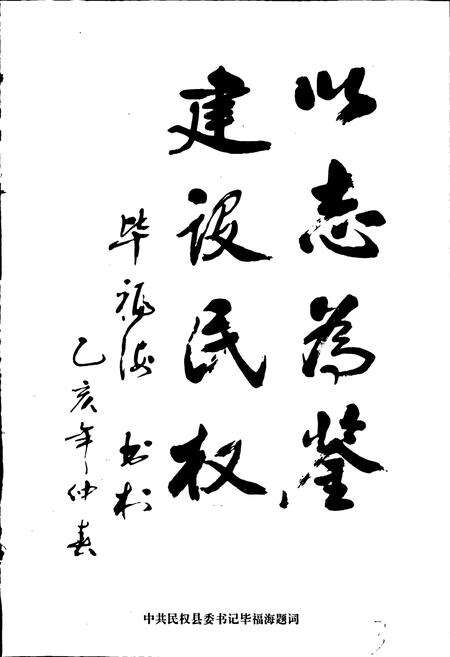 以志为鉴
建设民权
毕福海 书于
乙亥年仲春
中共民权县委书记毕福海题词